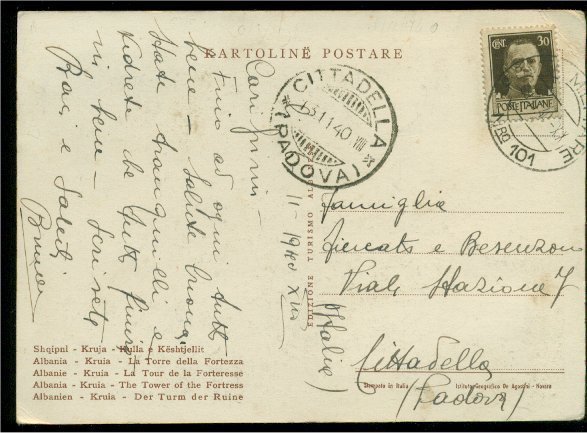 KARTOLINË POSTARE
CENT. 30
POSTE ITALIANE
CITTADELLA
3.11.40 XIX
(PADOVA)
N.RO 101
Carissimi -
Fino ad ogni tutto
bene - Salute buona.
State tranquilli e
vedrete che tutto finirà
in bene - Scrivete
Baci e Saluti
Bruno
11-1940 XIX
Famiglia
e Besenzon
Viale Stazione 7
Cittadella
(Padova)
(Italia)
EDIZIONE TURISMO ALB
Shqipni - Kruja - Kulla e Kështjellit
Albania - Kruia - La Torre della Fortezza
Albanie - Kruia - La Tour de la Forteresse
Albania - Kruia - The Tower of the Fortress
Albanien - Kruia - Der Turm der Ruine
Stampato in Italia
Istituto Geografico De Agostini - Novara